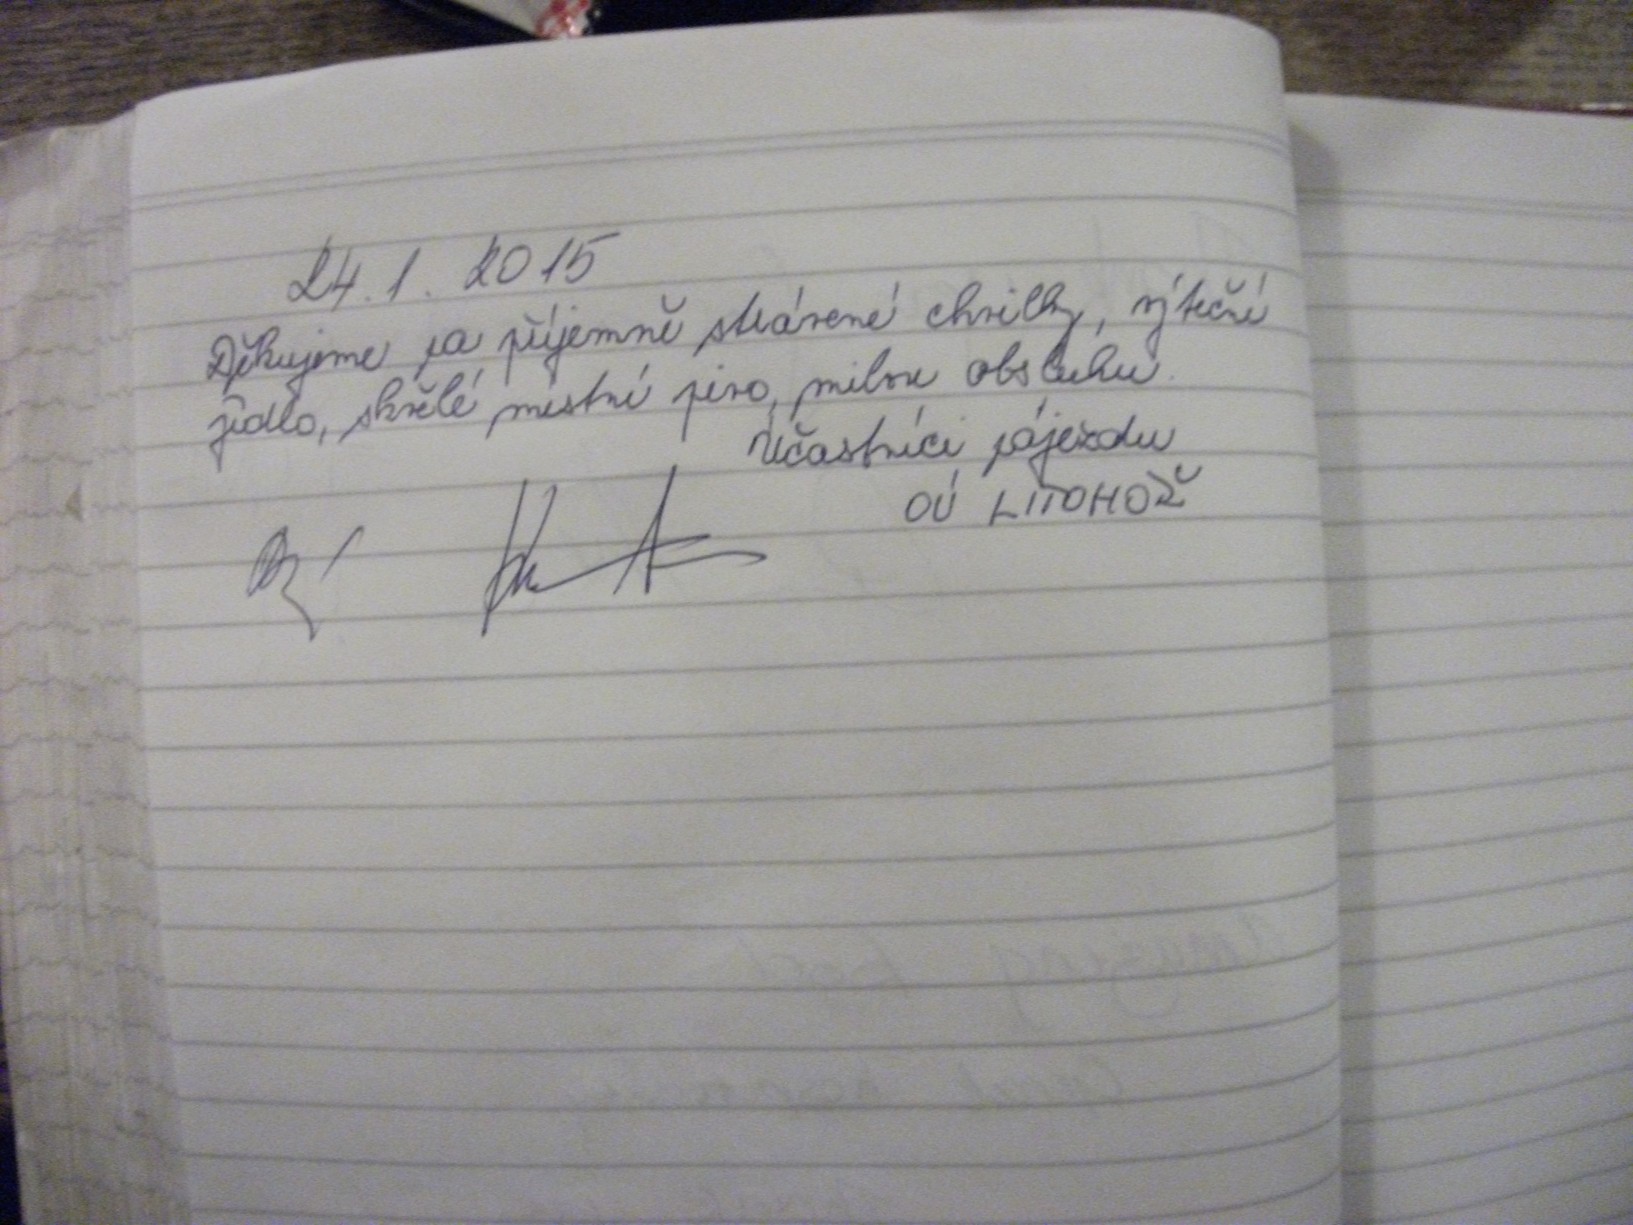 24.1. 2015
Děkujeme za příjemně strávené chvilky, výteční
jídlo, skvělé místní pivo, milou obsluhu.
Účastníci zájezdu
OÚ LITOHOŠŤ